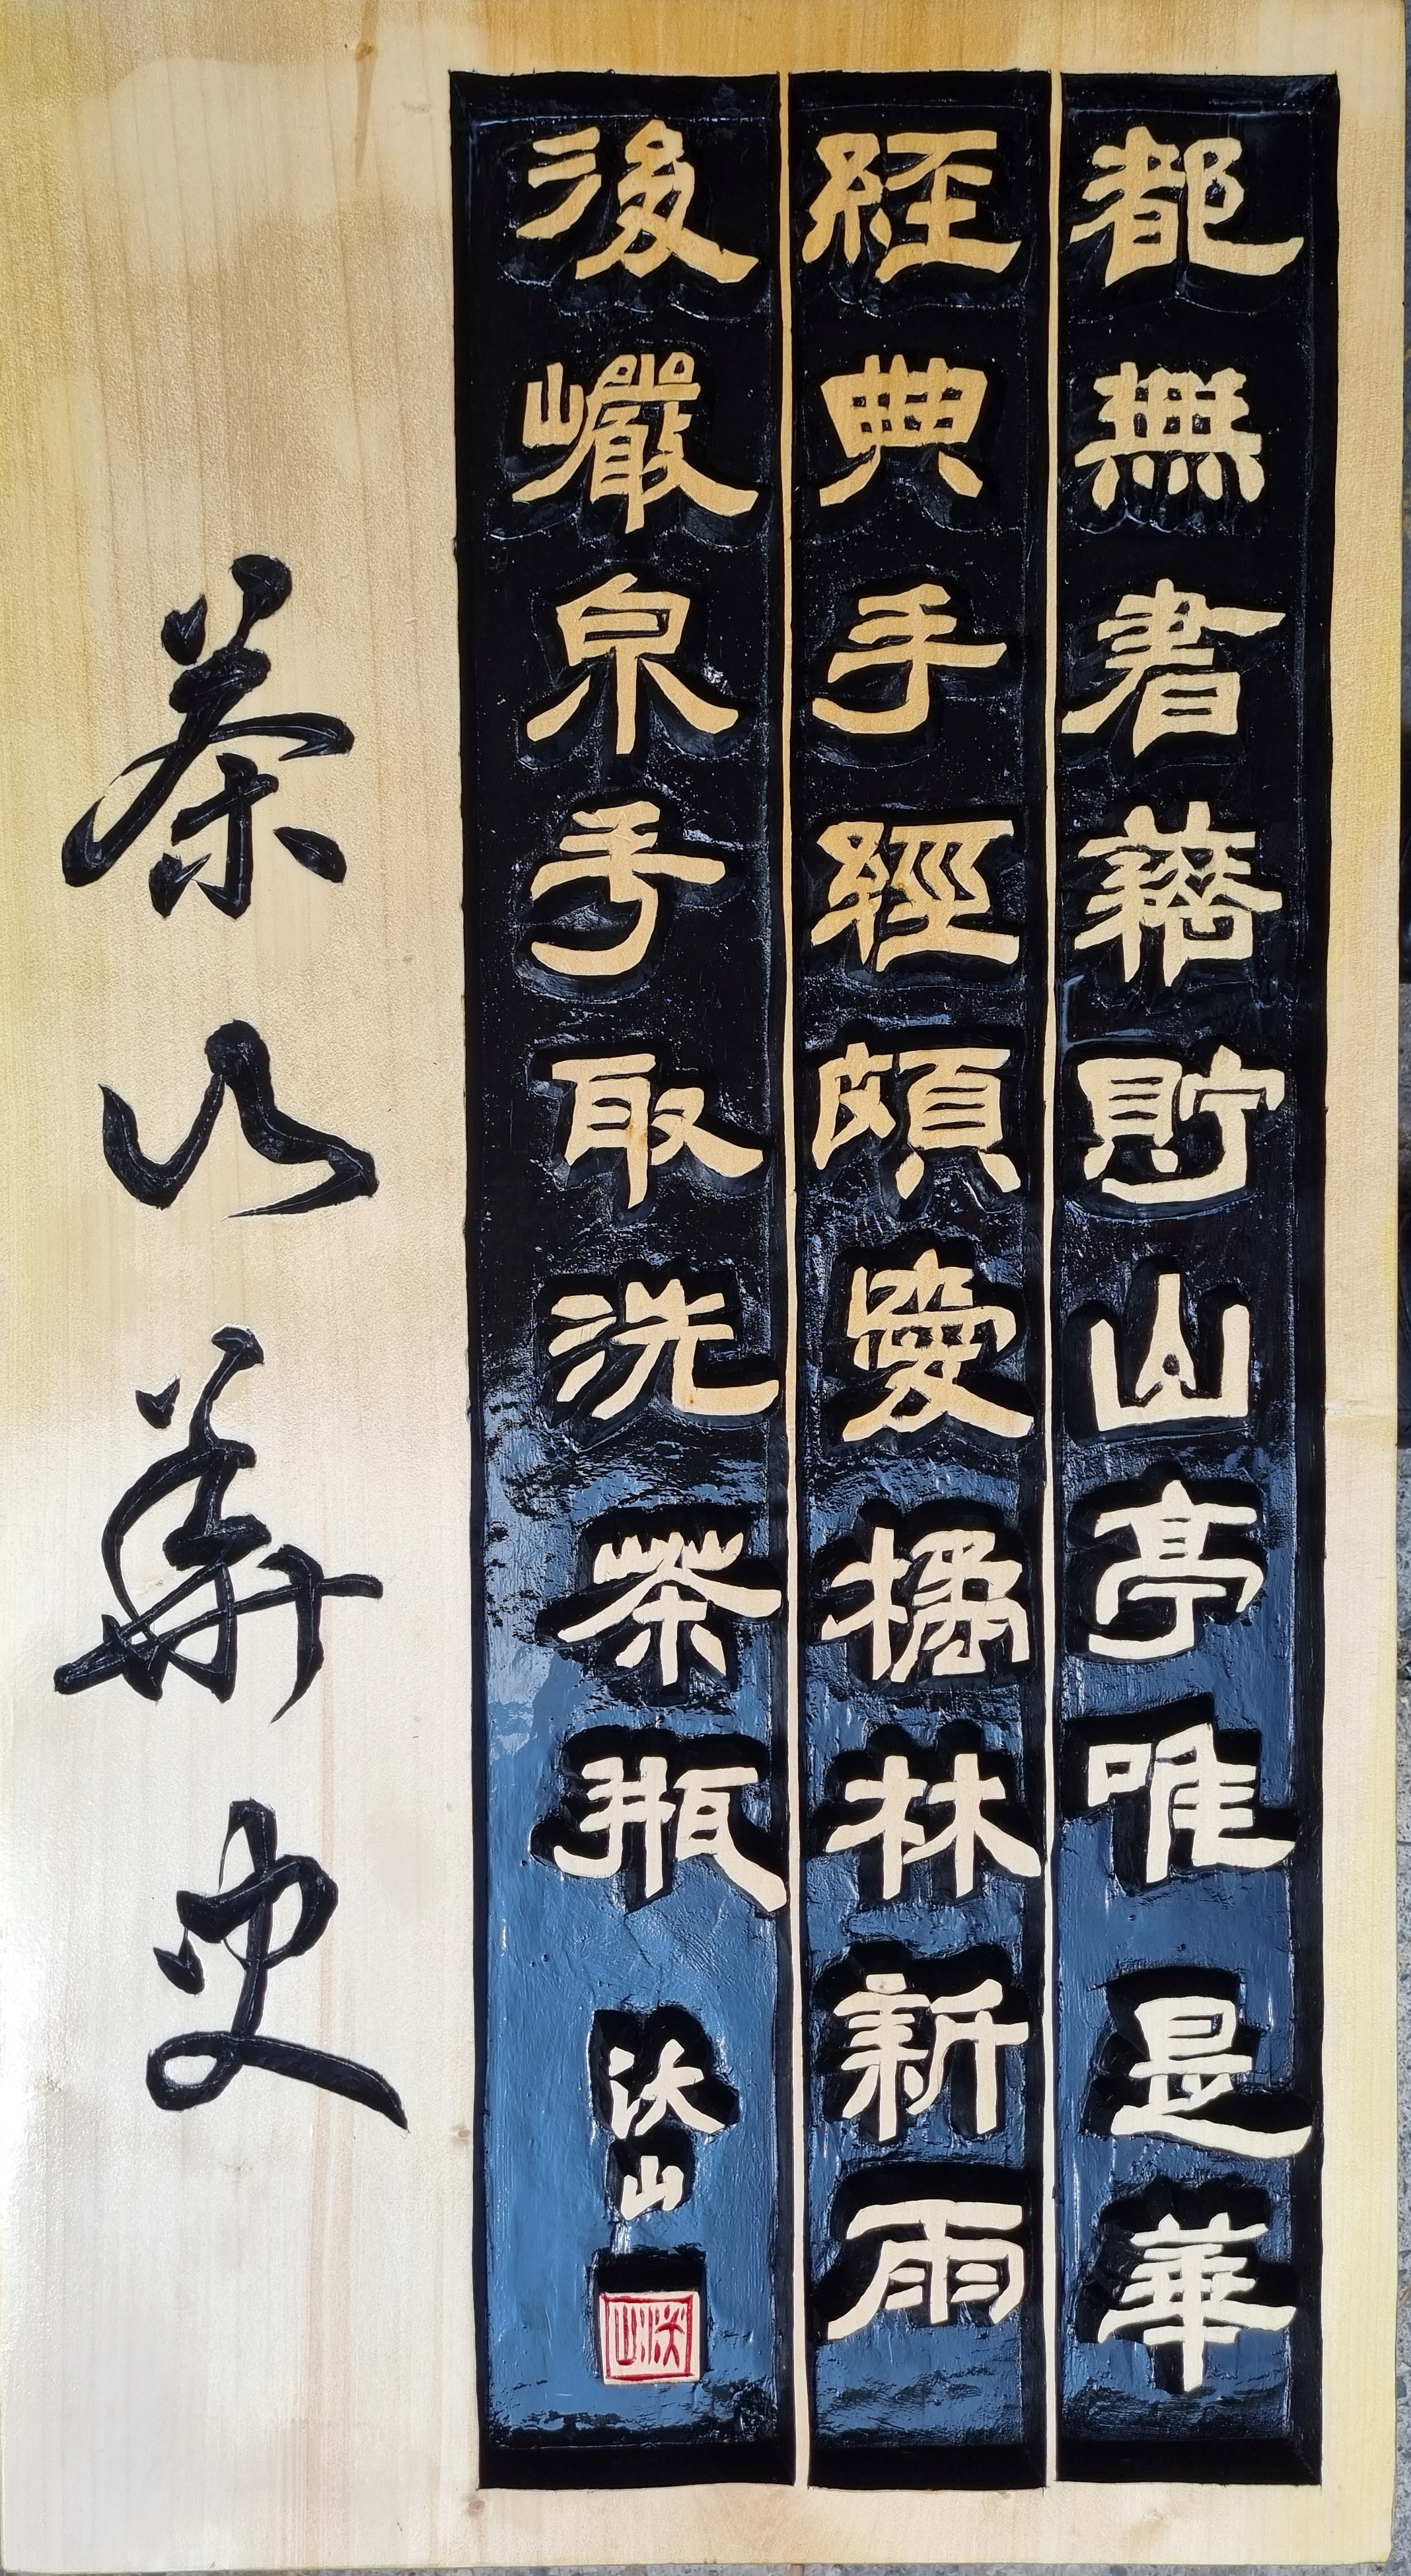 都無書藉貯山亭唯是華
經典手經頗愛橘林新雨
後巖泉手取洗茶瓶 沃山
茶山華史